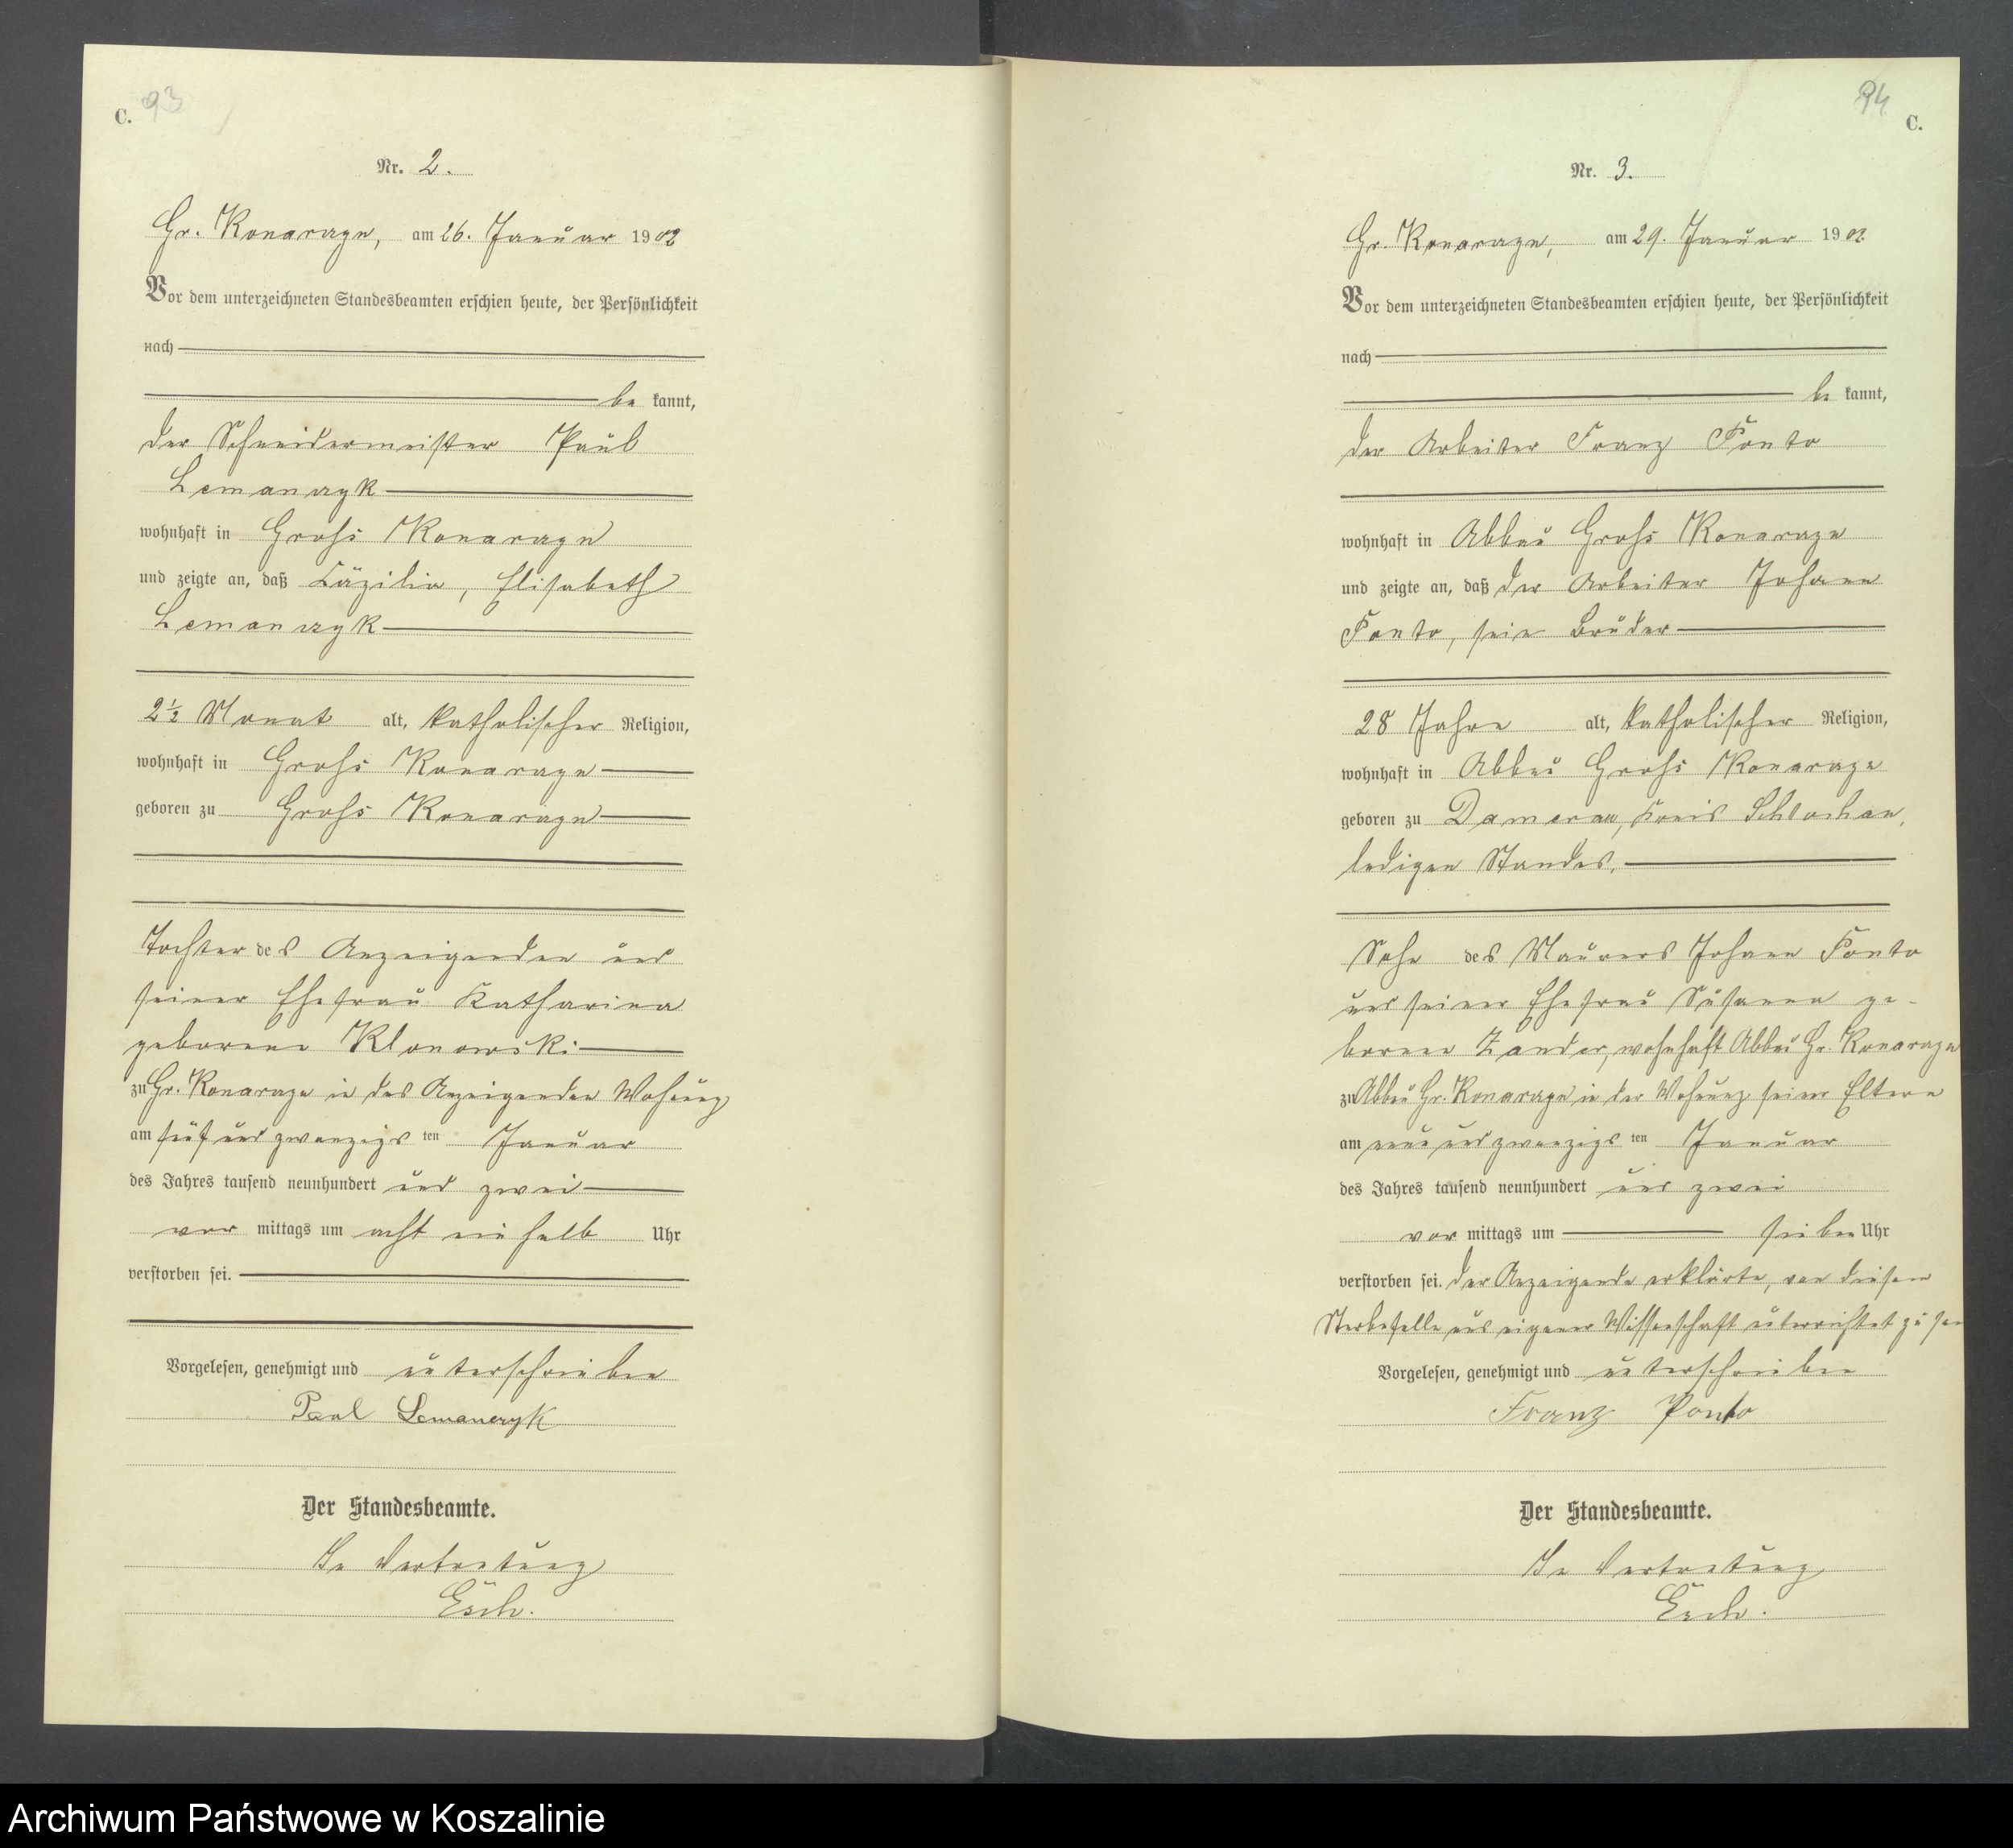 C. 93
Nr. 2.
Gr. Konarzyn, am 26. Januar 1902
Vor dem unterzeichneten Standesbeamten erschien heute, der Persönlichkeit
nach
be kannt,
der Schneidermeister Paul
Lemanczyk
wohnhaft in Groß Konarzyn
und zeigte an, daß Cäzilia, Elisabeth
Lemanczyk
2½ Monat alt, katholischer Religion,
wohnhaft in Groß Konarzyn
geboren zu Groß Konarzyn
Tochter des Anzeigenden und
seiner Ehefrau Katharina
geborene Klonowski
zu Gr. Konarzyn in des Anzeigenden Wohnung
am fünf und zwanzigs ten Januar
des Jahres tausend neunhundert und zwei
vor mittags um acht ein halb Uhr
verstorben sei.
Vorgelesen, genehmigt und unterschrieben
Paul Lemanczyk
Der Standesbeamte.
In Vertretung
Esch.
94
C.
Nr. 3.
Gr. Konarzyn, am 29. Januar 1902.
Vor dem unterzeichneten Standesbeamten erschien heute, der Persönlichkeit
nach
be kannt,
der Arbeiter Franz Ponto
wohnhaft in Abbau Groß Konarzyn
und zeigte an, daß der Arbeiter Johann
Ponto, sein Bruder
28 Jahre alt, katholischer Religion,
wohnhaft in Abbau Groß Konarzyn
geboren zu Damerau, Kreis Schlochau,
ledigen Standes,
Sohn des Maurers Johann Ponto
und seiner Ehefrau Susanna ge-
borene Zander, wohnhaft Abbau Gr. Konarzyn
zu Abbau Gr. Konarzyn in der Wohnung seiner Eltern
am neun und zwanzigs ten Januar
des Jahres tausend neunhundert und zwei
vor mittags um sieben Uhr
verstorben sei. Der Anzeigende erklärte, von diesem
Sterbefalle aus eigener Wissenschaft unterrichtet zu sein
Vorgelesen, genehmigt und unterschrieben
Franz Ponto
Der Standesbeamte.
In Vertretung
Esch.
Archiwum Państwowe w Koszalinie